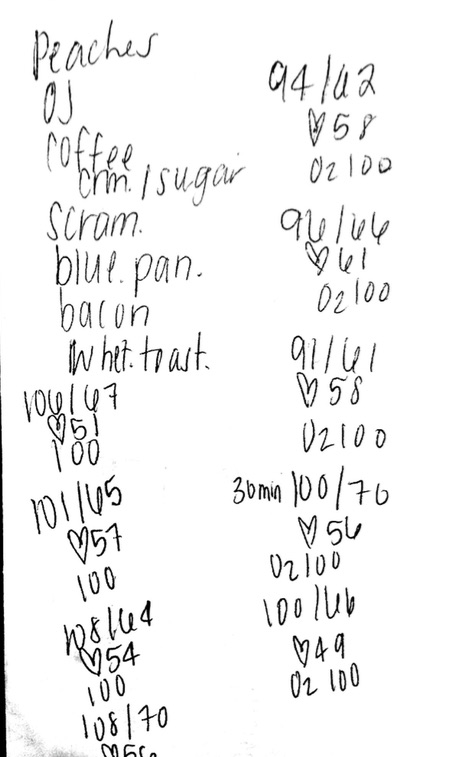 Peaches
OJ
coffee
crm./sugar
scram.
blue. pan.
bacon
1 whet. toast.
106/67
♡51
100
101/65
♡57
100
108/64
♡54
100
108/70
94/62
♡58
O2 100
96/66
♡61
O2 100
91/61
♡58
O2 100
30min 100/70
♡56
O2 100
100/66
♡49
O2 100